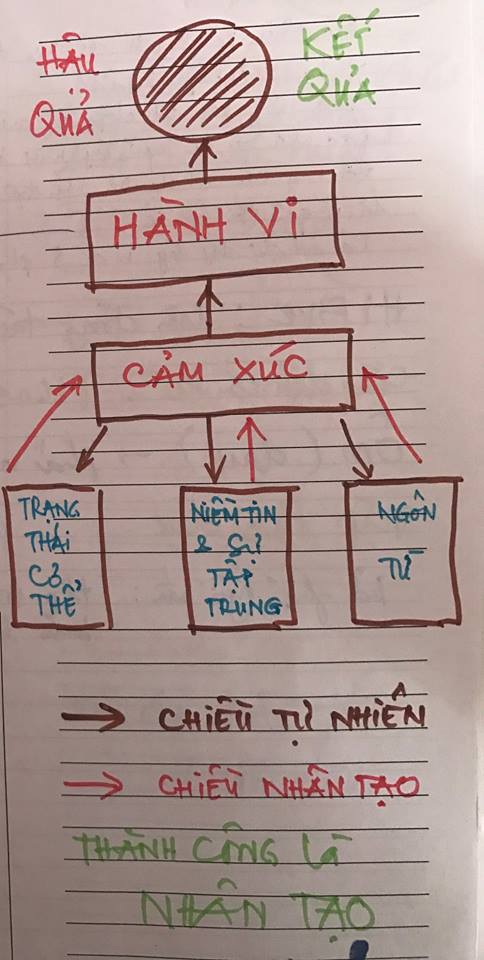 HẬU
QUẢ
KẾT
QUẢ
HÀNH VI
CẢM XÚC
TRẠNG
THÁI
CƠ
THỂ
NIỀM TIN
& SỰ
TẬP
TRUNG
NGÔN
TỪ
→ CHIỀU TỰ NHIÊN
→ CHIỀU NHÂN TẠO
THÀNH CÔNG LÀ
NHÂN TẠO